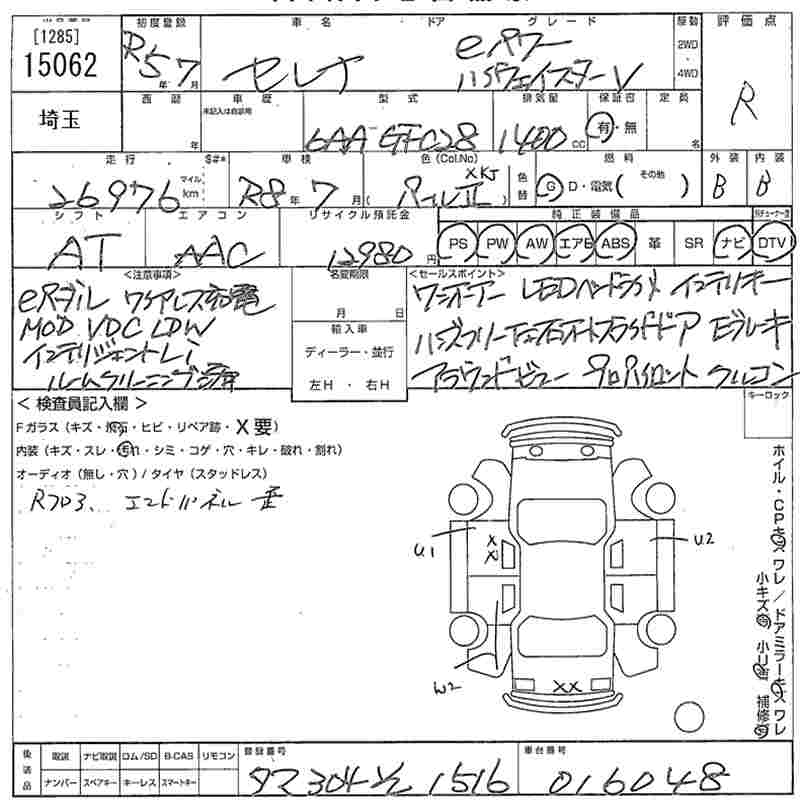 [1285]
15062
初度登録 車名 ドア グレード 駆動 評価点
R5年7月 セレナ eパワー ハイウェイスターV 2WD 4WD R
埼玉
西暦 車歴 型式 排気量 保証書 定員
年 未記入は自家用 6AA-GFC28 1400cc 有・無 名
走行 S#* 車検 色(Col.No) 燃料 外装 内装
26976 マイル km R8年7月 パールII XKJ 色替 G D・電気( その他 ) B B
シフト エアコン リサイクル預託金 純正装備品
AT AAC 12980円 PS PW AW エアB ABS 革 SR ナビ DTV
<注意事項> 名変期限 <セールスポイント>
月 日
輸入車
ディーラー・並行
左H ・ 右H
eペダル ワイヤレス充電
MOD VDC LDW
インテリジェントLi
ルームクリーニング済
ワンオーナー LEDヘッドライト インテリキー
ハンズフリー左右オートスライドドア Eブレーキ
アラウンドビュー プロパイロット クルコン
キーロック
< 検査員記入欄 >
Fガラス(キズ・飛石・ヒビ・リペア跡・X要)
内装(キズ・スレ・汚れ・シミ・コゲ・穴・キレ・破れ・割れ)
オーディオ(無し・穴)/タイヤ(スタッドレス)
Rフロア、エンドパネル
U1
X
X
U2
W2
XX
ホイル・CPキズワレ/ドアミラーキズワレ
小キズ 小凹 補修
後装品 取説 ナビ取説 ロム/SD B-CAS リモコン
ナンバー スペアキー キーレス スマートキー
登録番号 車台番号
304 1516 016048